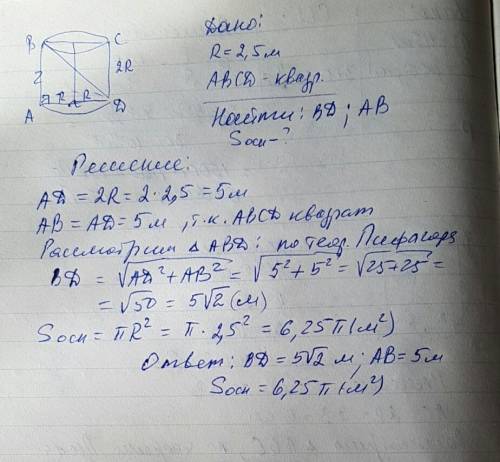 Дано:
R = 2,5 м
ABCD - квадр.
Найти: BD; AB
Sосн - ?
B C
2 2R
R R
A D
Решение:
AD = 2R = 2 · 2,5 = 5м
AB = AD = 5м, т.к. ABCD квадрат
Рассмотрим Δ ABD: по теор. Пифагора
BD = √AD² + AB² = √5² + 5² = √25 + 25 =
= √50 = 5√2 (м)
Sосн = πR² = π · 2,5² = 6,25π (м²)
Ответ: BD = 5√2 м; AB = 5м
Sосн = 6,25 π (м²)